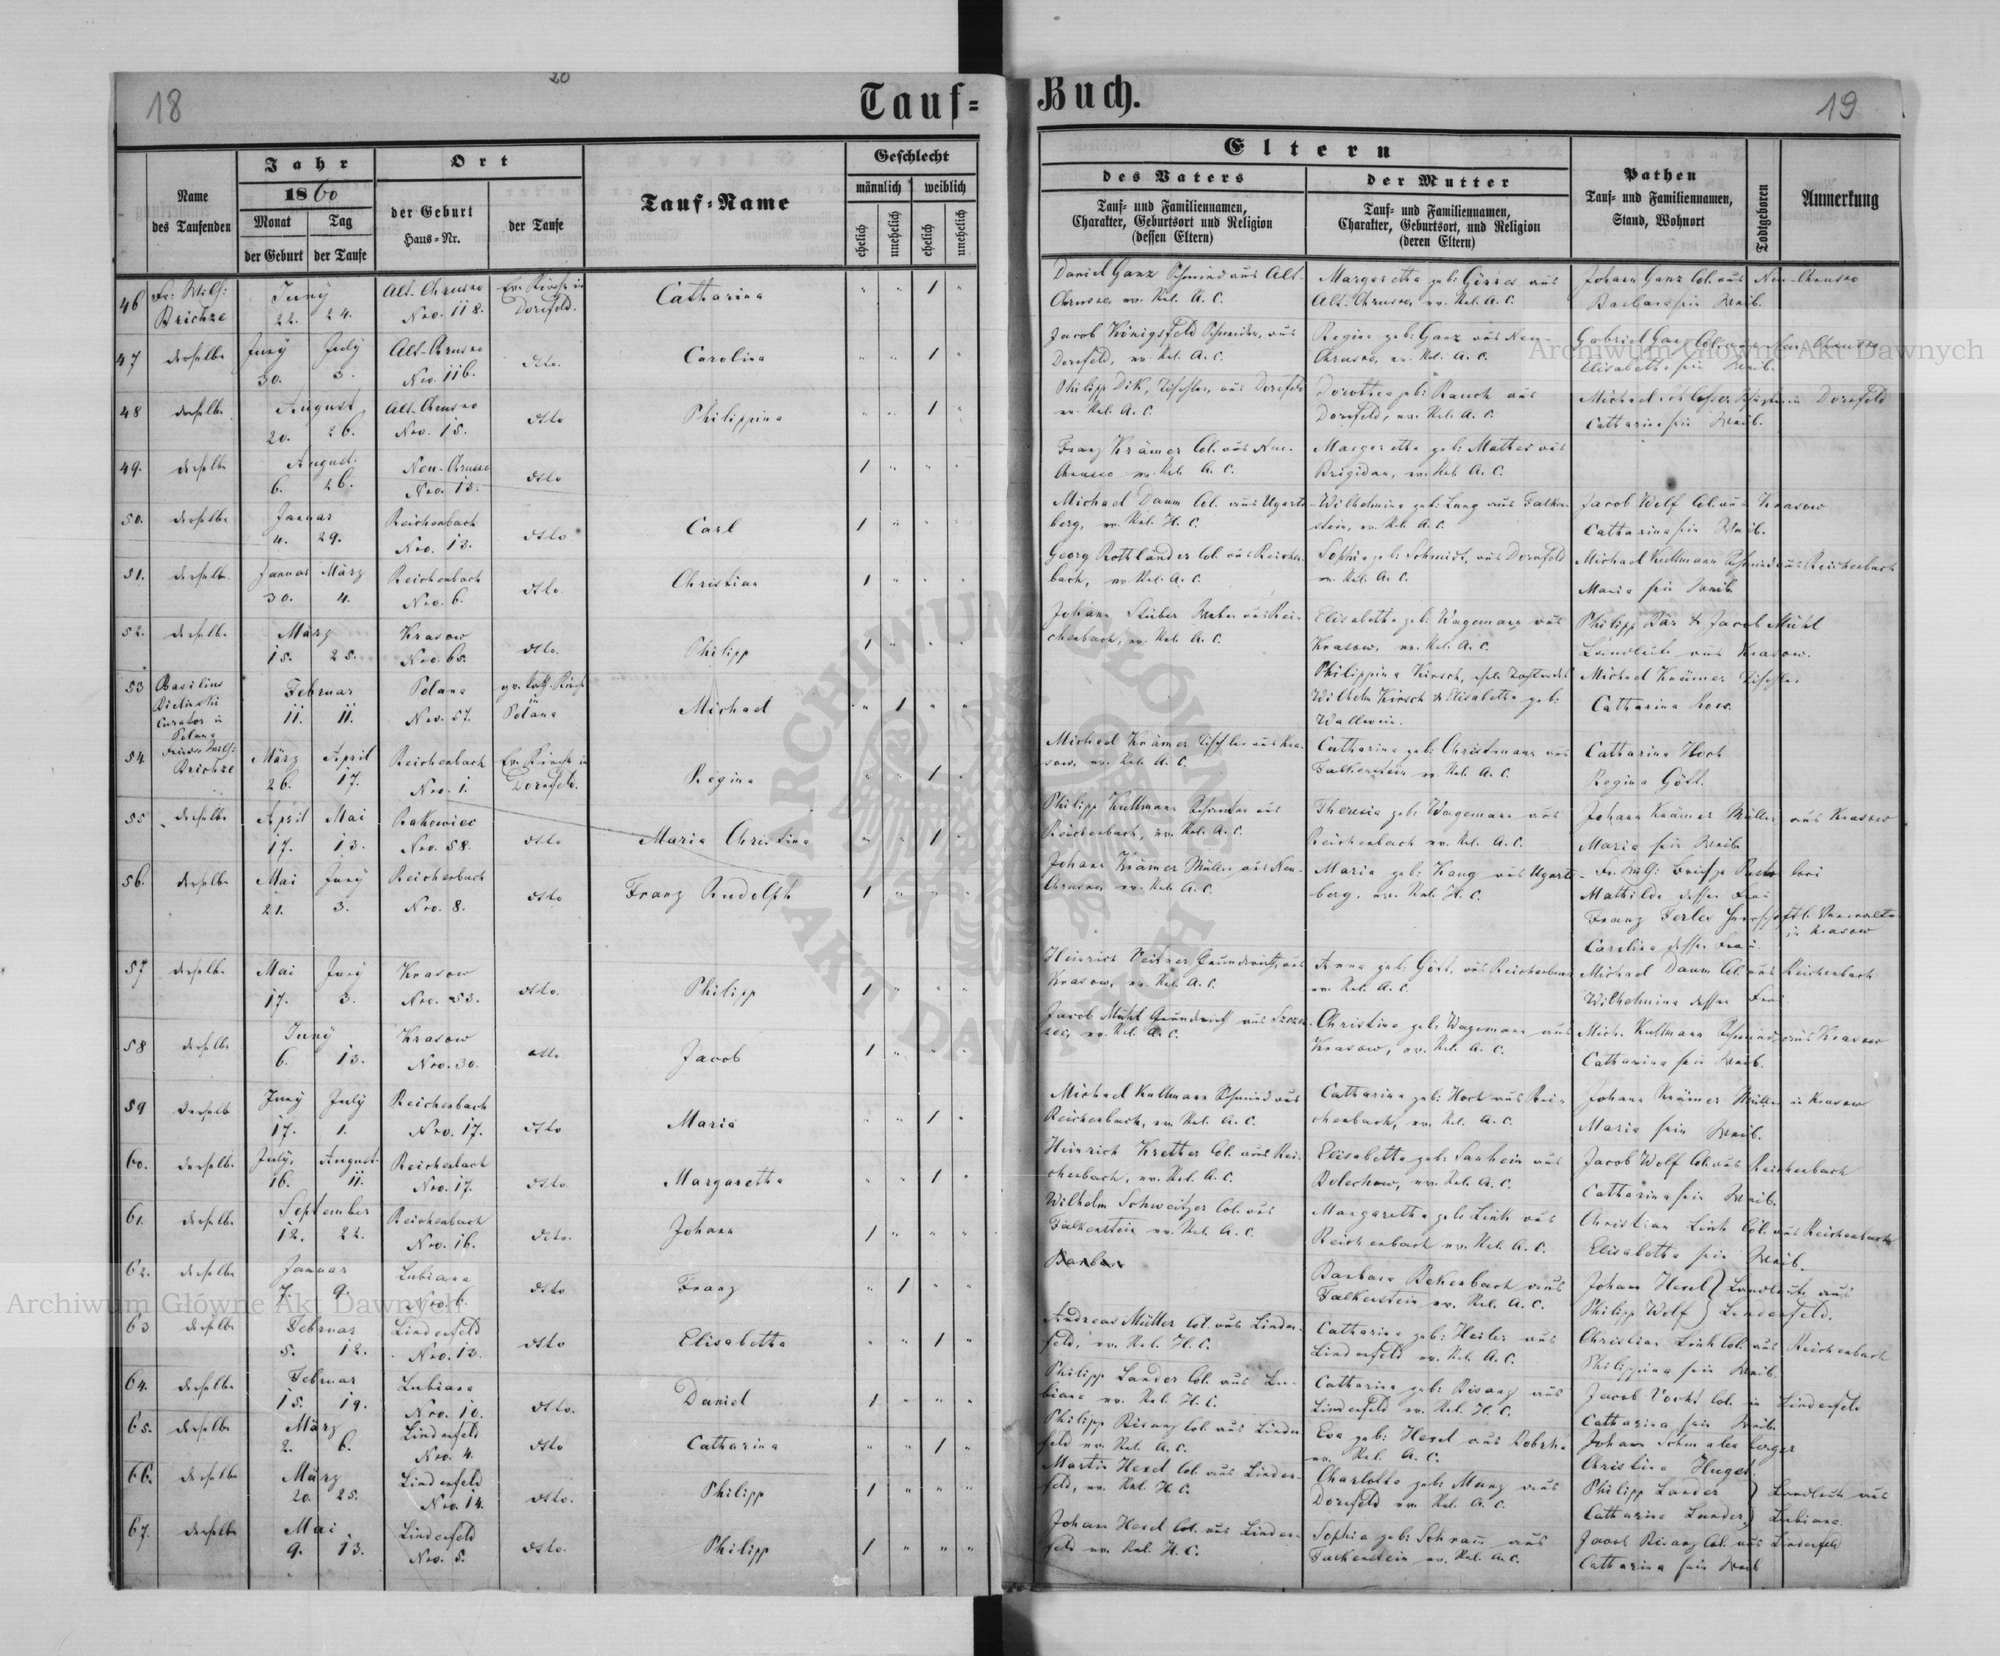 18
20
Tauf=
Buch.
19
Name
des Taufenden
Jahr
1860
Monat
der Geburt
Tag
der Taufe
Ort
der Geburt
Haus=Nr.
der Taufe
Tauf=Name
Geschlecht
männlich
weiblich
ehelich
unehelich
ehelich
unehelich
Eltern
des Vaters
Tauf= und Familiennamen,
Charakter, Geburtsort und Religion
(dessen Eltern)
der Mutter
Tauf= und Familiennamen,
Charakter, Geburtsort, und Religion
(deren Eltern)
Pathen
Tauf= und Familiennamen,
Stand, Wohnort
Todtgeboren
Anmerkung
46 Juny 22. 24. Nro. 118. Dornfeld. Catharina 1
Daniel Ganz Schmied aus Alt-
Margaretha geb: aus
Johann Ganz Col. aus Neu-Chrusno
Barbara sein Weib.
47 derselbe Juny 30. July 3. Alt-Chrusno Nro. 116. dtto. Carolina 1
Jacob Königsfeld Schneider, aus
Dornfeld, ev. Rel. A. C.
Regina geb: Ganz aus Neu-
Chrusno, ev. Rel. A. C.
Elisabetha sein Weib.
48 derselbe August 20. 26. Alt-Chrusno Nro. 15. dtto Philippina 1
Philipp Dik, Tischler, aus Dornfeld
ev. Rel. A. C.
Dorothea geb: Rauch aus
Dornfeld, ev. Rel. A. C.
Catharina sein Weib.
49. derselbe August 6. 26. Neu-Chrusno Nro. 13. dtto 1
Franz Krämer Col. aus Neu-
Chrusno ev. Rel. A. C.
Margaretha geb: Mattes aus
Brigidau, ev. Rel. A. C.
50. derselbe Januar 4. 29. Reichenbach Nro. 13. dtto Carl 1
Michael Daum Col. aus Ugarts-
berg, ev. Rel. H. C.
Wilhelmina geb: Lang aus Falken-
stein, ev. Rel. A. C.
Jacob Wolf Col. aus Krasow
Catharina sein Weib.
51. derselbe Januar 30. März 4. Reichenbach Nro. 6. dtto. Christian 1
Georg Rottländer Col. aus Reichen-
bach, ev. Rel. A. C.
Sophia geb: Schmidt, aus Dornfeld
ev. Rel. A. C.
Michael Kullmann Schmied aus Reichenbach
Maria sein Weib.
52. derselbe März 15. 25. Krasow Nro. 65. dtto. Philipp 1
Johann Stuber Weber aus Rei-
chenbach, ev. Rel. A. C.
Elisabetha geb: Wagemann aus
Krasow, ev. Rel. A. C.
Philipp Bär & Jacob Mühl
Landleute aus Krasow.
53 Basilius Curator in Polana Februar 11. 11. Polana Nro. 57. in Polana Michael 1
Philippina Kirsch,
Wilhelm Kirsch & Elisabetha geb:
Wallwein.
Michael Krämer Tischler
Catharina
54. März 26. April 17. Reichenbach Nro. 1. Ev. Kirche in Dornfeld. Regina 1
Michael Krämer Tischler aus Kra-
sow, ev. Rel. A. C.
Catharina geb: Christmann aus
Falkenstein ev. Rel. A. C.
Catharina Hock
Regina Gött.
55 derselbe April 17. Mai 13. Rakowiec Nro. 58. dtto Maria Christina 1
Philipp Kullmann aus
Reichenbach, ev. Rel. A. C.
Theresia geb: Wagemann aus
Reichenbach ev. Rel. A. C.
Johann Krämer Müller aus Krasow
Maria sein Weib
56. derselbe Mai 21. Juny 3. Reichenbach Nro. 8. dtto Franz Rudolph 1
Johann Krämer Müller aus Neu-
Chrusno, ev. Rel. A. C.
Maria geb: aus Ugarts-
berg, ev. Rel. H. C.
Mathilde dessen Frau
Franz
in Krasow
Carolina dessen Frau.
57 derselbe Mai 17. Juny 3. Krasow Nro. 53. dtto. Philipp 1
Heinrich Grundwirth, aus
Krasow, ev. Rel. A. C.
Anna geb: Gött, aus Reichenbach
ev. Rel. A. C.
Michael Daum Col. aus Reichenbach
Wilhelmina dessen Frau
58 derselbe Juny 6. 13. Krasow Nro. 30. dtto. Jacob 1
Jacob Mühl Grundwirth aus
ev. Rel. A. C.
Christina geb: Wagemann aus
Krasow, ev. Rel. A. C.
Mich. Kullmann Schmied, aus Krasow
Catharina sein Weib.
59 derselbe Juny 17. July 1. Reichenbach Nro. 17. dtto Maria 1
Michael Kullmann Schmied aus
Reichenbach, ev. Rel. A. C.
Catharina geb: Hock aus Rei-
chenbach, ev. Rel. A. C.
Johann Krämer Müller in Krasow
Maria sein Weib.
60. derselbe July. 16. August. 11. Reichenbach Nro. 17. dtto. Margaretha 1
Heinrich Kretter Col. aus Rei-
chenbach, ev. Rel. A. C.
Elisabetha geb: Sauhein aus
Bolechow, ev. Rel. A. C.
Jacob Wolf Col. aus Reichenbach
Catharina sein Weib.
61. derselbe September 12. 22. Reichenbach Nro. 16. dtto. Johann 1
Wilhelm Schweitzer Col. aus
Falkenstein ev. Rel. A. C.
Margaretha geb: Link aus
Reichenbach ev. Rel. A. C.
Christian Link Col. aus Reichenbach
Elisabetha sein Weib.
62. derselbe Januar 7. 9. Lubiana Nro. 6. dtto Franz 1
Barbara
Barbara Bekerbach aus
Falkenstein ev. Rel. A. C.
Johann Hexel } Landleute aus
Philipp Wolf } Lindenfeld.
63 derselbe Februar 5. 12. Lindenfeld Nro. 13. dtto Elisabetha 1
Andreas Müller Col. aus Linden-
feld, ev. Rel. H. C.
Catharina geb: Heiler aus
Lindenfeld ev. Rel. A. C.
Christian Link Col. aus Reichenbach
Philippina sein Weib.
64. derselbe Februar 15. 19. Lubiana Nro. 10. dtto. Daniel 1
Philipp Lander Col. aus Lu-
biana ev. Rel. H. C.
Catharina geb: Bisanz aus
Lindenfeld ev. Rel. H. C.
Jacob Vocht Col. in Lindenfeld
Catharina sein Weib.
65. derselbe März 2. 6. Lindenfeld Nro. 4. dtto Catharina 1
Philipp Bisanz Col. aus Linden-
feld ev. Rel. A. C.
Eva geb: Hexel aus
ev. Rel. A. C.
Johann Schmalenberger
Christina Hugel.
66. derselbe März 20. 25. Lindenfeld Nro. 14. dtto. Philipp 1
Martin Hexel Col. aus Linden-
feld, ev. Rel. H. C.
Charlotte geb: Manz aus
Dornfeld ev. Rel. A. C.
Philipp Lander } Landleute aus
Catharina Lander } Lubiana.
67. derselbe Mai 9. 13. Lindenfeld Nro. 5. dtto. Philipp 1
Johann Hexel Col. aus Linden-
feld ev. Rel. H. C.
Sophia geb: Schram aus
Falkenstein ev. Rel. A. C.
Jacob Bisanz Col. aus Lindenfeld
Catharina sein Weib
Archiwum Główne Akt Dawnych
Archiwum Główne Akt Dawnych
ARCHIWUM GŁÓWNE AKT DAWNYCH